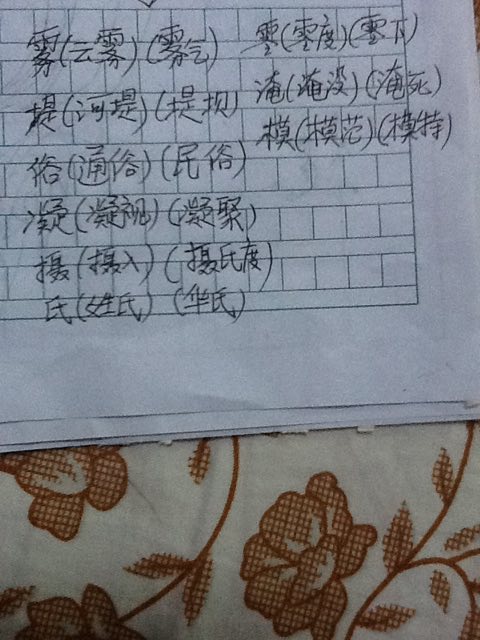 雾(云雾)(雾气)
堤(河堤)(堤坝)
俗(通俗)(民俗)
凝(凝视)(凝聚)
摄(摄入)(摄氏度)
氏(姓氏)(华氏)
零(零度)(零下)
淹(淹没)(淹死)
模(模范)(模特)